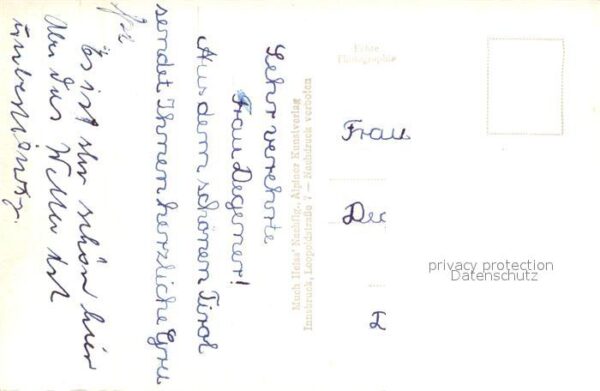 Sehr verehrte
Frau Degener!
Aus dem schönen Tirol
sendet Ihnen herzliche Grü
Es ist sehr schön hier
Aber das Wetter ist
unbeständig.
Echte
Photographie
Much Heiss' Nachflg., Alpiner Kunstverlag
Innsbruck, Leopoldstraße 7 — Nachdruck verboten
Frau
De
privacy protection
Datenschutz